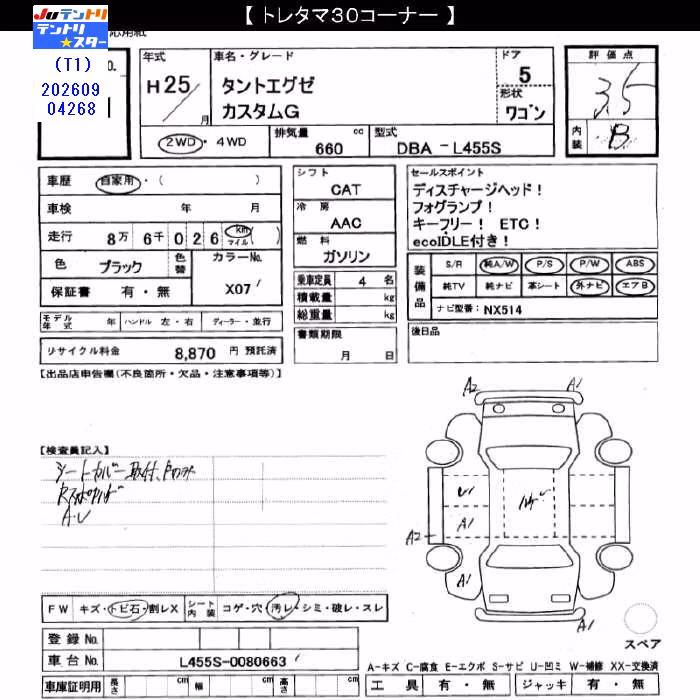 【 トレタマ30コーナー 】
JUテントリ
テントリ
★スター
(T1)
202609
04268
応用紙
年式
H25/
月
車名・グレード
タントエグゼ
カスタムG
ドア
5
形状
ワゴン
評価点
3.5
内装
B
2WD ・ 4WD
排気量
660 cc
型式
DBA － L455S
車歴 自家用・( )
車検 年 月
走行 8万 6千 0 2 6 km マイル ( )
色 ブラック
色替
カラーNo.
X07
保証書 有・無
モデル年式 年 ハンドル 左・右 ディーラー・並行
リサイクル料金 8,870 円 預託済
シフト
CAT
冷房
AAC
燃料
ガソリン
乗車定員 4 名
積載量 kg
総重量 kg
書類期限
月 日
セールスポイント
ディスチャージヘッド！
フォグランプ！
キーフリー！ ETC！
ecoIDLE付き！
装備品
S/R 純A/W P/S P/W ABS
純TV 純ナビ 革シート 外ナビ エアB
ナビ型番： NX514
後日品
【出品店申告欄(不良箇所・欠品・注意事項等)】
【検査員記入】
シートカバー取付
A・U
A2
A1
U1
A1
A2
A1
A1
FW キズ・トビ石・割レX
シート内装 コゲ・穴・汚レ・シミ・破レ・スレ
登録 No.
車台 No. L455S-0080663
車庫証明用 長さ cm 幅 cm 高さ cm
スペア
A-キズ C-腐食 E-エクボ S-サビ U-凹ミ W-補修 XX-交換済
工具 有・無 ジャッキ 有・無